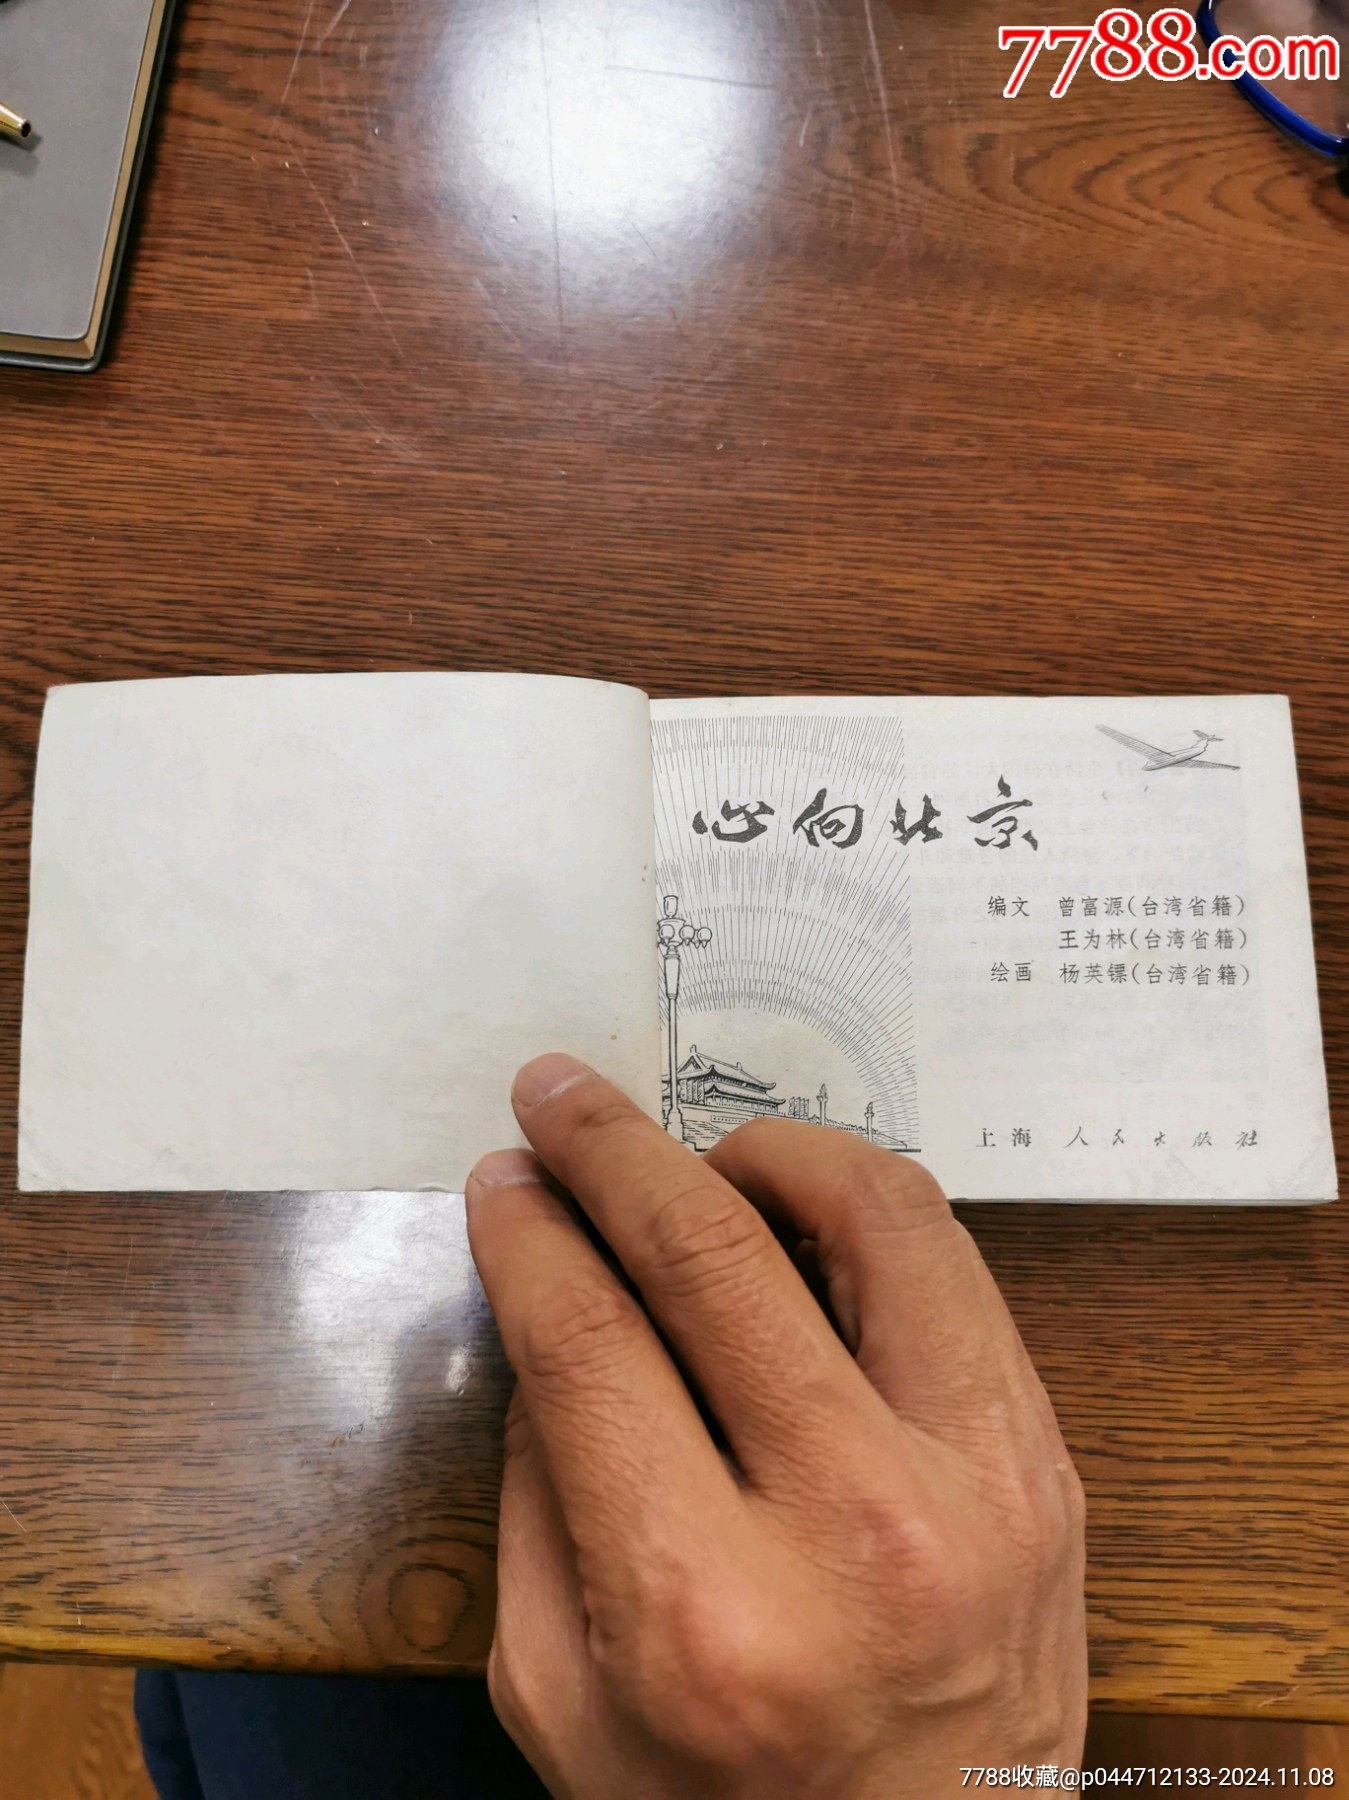 7788.com
心向北京
编文 曾富源(台湾省籍)
王为林(台湾省籍)
绘画 杨英镖(台湾省籍)
上海人民出版社
7788收藏@p044712133-2024.11.08